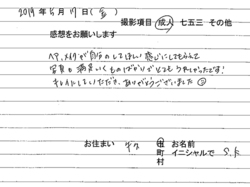 2019年 5月 17日(金)
撮影項目 成人 七五三 その他
感想をお願いします
ヘアメイクが自分のしてほしい感じにしてもらえて
写真も満足いくものばかりでとてもうれしかったです!
キレイにしていただき、ありがとうございました☺
お住まい 市 区 町 村
お名前 イニシャルで S.K